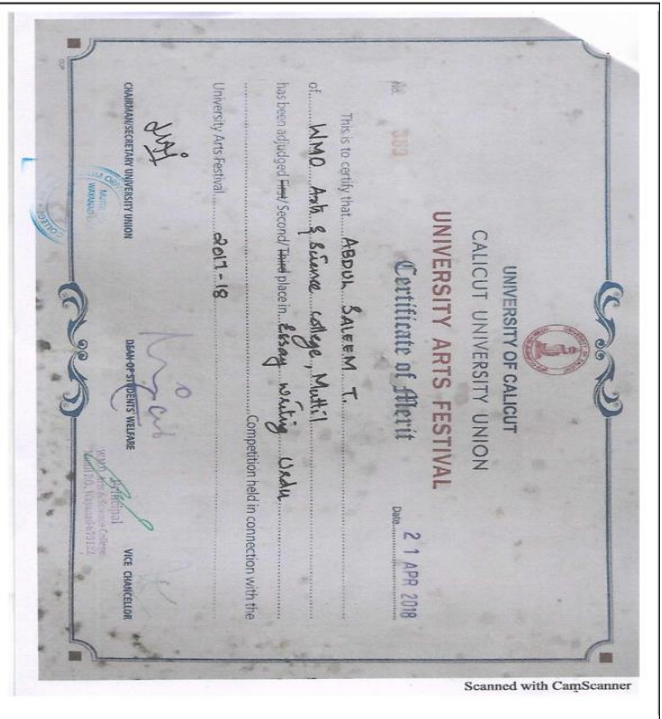 UNIVERSITY OF CALICUT
CALICUT UNIVERSITY UNION
UNIVERSITY ARTS FESTIVAL
Certificate of Merit
No. Date 21 APR 2018
This is to certify that ABDUL SALEEM T.
of WMO Arts & Science college, Muttil
has been adjudged First/Second/Third place in Essay writing Urdu
Competition held in connection with the
University Arts Festival 2017-18
CHAIRMAN/SECRETARY UNIVERSITY UNION DEAN OF STUDENTS WELFARE VICE CHANCELLOR
Principal
Scanned with CamScanner